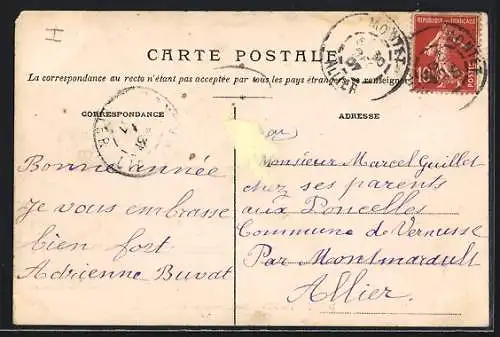 CARTE POSTALE
La correspondance au recto n'étant pas acceptée par tous les pays étrangers se renseigner
CORRESPONDANCE
Bonne année
Je vous embrasse
bien fort
Adrienne Buvat
ADRESSE
Monsieur Marcel Guillot
chez ses parents
aux Poncelles
Commune de Vernusse
Par Montmarault
Allier.
REPUBLIQUE FRANÇAISE
10c
POSTES
MONTET
ALLIER
07